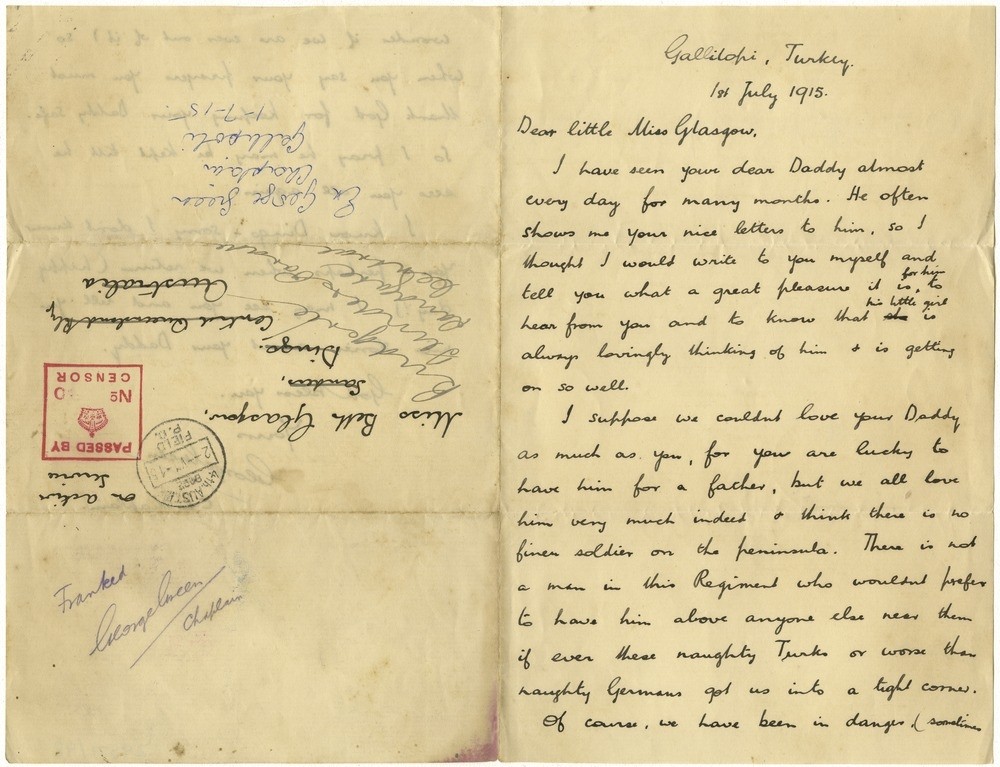 Gallilopi, Turkey.
1st July 1915.
Dear little Miss Glasgow,
I have seen your dear Daddy almost
every day for many months. He often
shows me your nice letters to him, so I
thought I would write to you myself and
for him
tell you what a great pleasure it is, to
his little girl
hear from you and to know that she is
always lovingly thinking of him & is getting
on so well.
I suppose we couldnt love your Daddy
as much as you, for you are lucky to
have him for a father, but we all love
him very much indeed & think there is no
finer soldier on the peninsula. There is not
a man in this Regiment who wouldnt prefer
to have him above anyone else near them
if ever these naughty Turks or worse than
naughty Germans got us into a tight corner.
Of course, we have been in danger (sometimes
On Active
Service
PASSED BY
CENSOR
No
4TH AUST. L.H.
FIELD
P.O.
Miss Beth Glasgow,
Dingo.
Central Queensland Rly
Australia
Ex George Green
Chaplain
Gallipoli
1-7-15
Franked
George Green
Chaplain